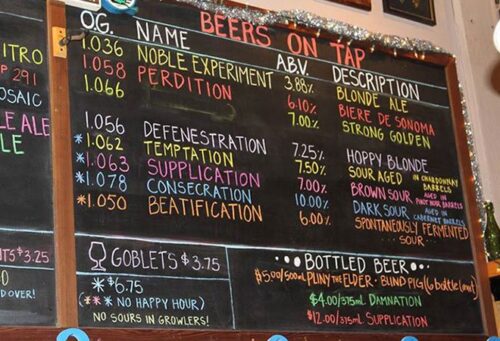 BEERS ON TAP
O.G. NAME ABV. DESCRIPTION
1.036 NOBLE EXPERIMENT 3.88% BLONDE ALE
1.058 PERDITION 6.10% BIERE DE SONOMA
1.066 7.00% STRONG GOLDEN
1.056 DEFENESTRATION 7.25% HOPPY BLONDE
*1.062 TEMPTATION 7.50% SOUR AGED IN CHARDONNAY BARRELS
*1.063 SUPPLICATION 7.00% BROWN SOUR AGED IN PINOT NOIR BARRELS
*1.078 CONSECRATION 10.00% DARK SOUR AGED IN CABERNET BARRELS
*1.050 BEATIFICATION 6.00% SPONTANEOUSLY FERMENTED
...SOUR...
ITRO
SP 291
OSAIC
ALE ALE
LE
NTS $3.25
ED OVER!
GOBLETS $3.75
* $6.75
(** NO HAPPY HOUR.)
NO SOURS IN GROWLERS!
BOTTLED BEER
$5.00/500ML PLINY THE ELDER · BLIND PIG (6 bottle limit)
$4.00/375ML DAMNATION
$12.00/375ML SUPPLICATION